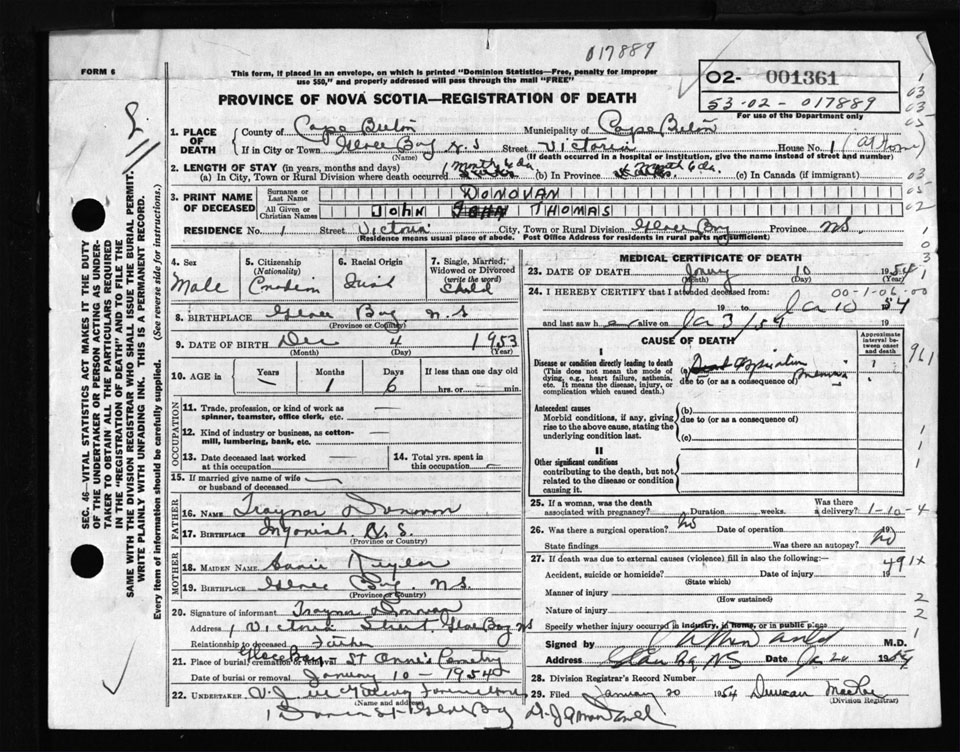 017889
FORM 6
This form, if placed in an envelope, on which is printed "Dominion Statistics—Free, penalty for improper
use $50," and properly addressed will pass through the mail "FREE"
O2- 001361
53-02-017889
For use of the Department only
PROVINCE OF NOVA SCOTIA—REGISTRATION OF DEATH
1. PLACE OF DEATH
County of Cape Breton Municipality of Cape Breton
If in City or Town Glace Bay N.S Street Victoria House No. 1 (At Home)
(Name) (If death occurred in a hospital or institution, give the name instead of street and number)
2. LENGTH OF STAY (in years, months and days)
(a) In City, Town or Rural Division where death occurred 1 month 6 da. (b) In Province 1 month 6 da. (c) In Canada (if immigrant)
3. PRINT NAME OF DECEASED
Surname or Last Name DONOVAN
All Given or Christian Names JOHN THOMAS
RESIDENCE No. 1 Street Victoria City, Town or Rural Division Glace Bay Province NS.
(Residence means usual place of abode. Post Office Address for residents in rural parts not sufficient)
4. Sex
Male
5. Citizenship
(Nationality)
Canadian
6. Racial Origin
Irish
7. Single, Married, Widowed or Divorced
(write the word)
Child
8. BIRTHPLACE Glace Bay N.S
(Province or Country)
9. DATE OF BIRTH Dec 4 1953
(Month) (Day) (Year)
10. AGE in
Years Months Days If less than one day
— 1 6 hrs. or min.
OCCUPATION
11. Trade, profession, or kind of work as
spinner, teamster, office clerk, etc. —
12. Kind of industry or business, as cotton-
mill, lumbering, bank, etc. —
13. Date deceased last worked
at this occupation —
14. Total yrs. spent in
this occupation —
15. If married give name of wife
or husband of deceased —
FATHER
16. NAME Traynor Donovan
17. BIRTHPLACE Ingonish N.S.
(Province or Country)
MOTHER
18. MAIDEN NAME
19. BIRTHPLACE Glace Bay. NS.
(Province or Country)
20. Signature of informant Traynor Donovan
Address 1 Victoria Street, Glace Bay NS
Relationship to deceased Father
21. Place of burial, cremation or removal Glace Bay St Anne's Cemetry
Date of burial or removal January 10 - 1954
22. UNDERTAKER V.J.
(Name and address)
Glace Bay
MEDICAL CERTIFICATE OF DEATH
23. DATE OF DEATH 10 1954
(Month) (Day) (Year)
00-1-06-00
24. I HEREBY CERTIFY that I attended deceased from:
19 to Ja 10 1954
and last saw h alive on Ja 3/54 19
CAUSE OF DEATH
Approximate interval between onset and death
I
Disease or condition directly leading to death
(This does not mean the mode of
dying, e.g., heart failure, asthenia,
etc. It means the disease, injury, or
complication which caused death.)
(a)
due to (or as a consequence of)
?
Antecedent causes
Morbid conditions, if any, giving
rise to the above cause, stating the
underlying condition last.
(b)
due to (or as a consequence of)
(c)
II
Other significant conditions
contributing to the death, but not
related to the disease or condition
causing it.
25. If a woman, was the death
associated with pregnancy? Duration weeks. Was there a delivery? 1-10-4
26. Was there a surgical operation? No Date of operation 19
State findings Was there an autopsy? No
27. If death was due to external causes (violence) fill in also the following:
Accident, suicide or homicide? Date of injury 19
(State which)
491x
Manner of injury
(How sustained)
Nature of injury
Specify whether injury occurred in industry, in home, or in public place
Signed by M.D.
Address Glace Bay NS Date Ja 20 1954
28. Division Registrar's Record Number
29. Filed January 20 1954 Duncan
(Division Registrar)
SEC. 46—VITAL STATISTICS ACT MAKES IT THE DUTY
OF THE UNDERTAKER OR PERSON ACTING AS UNDER-
TAKER TO OBTAIN ALL THE PARTICULARS REQUIRED
IN THE "REGISTRATION OF DEATH" AND TO FILE THE
SAME WITH THE DIVISION REGISTRAR WHO SHALL ISSUE THE BURIAL PERMIT.
WRITE PLAINLY WITH UNFADING INK. THIS IS A PERMANENT RECORD.
Every item of information should be carefully supplied. (See reverse side for instructions.)
1
03
03
05
03
05
02
1
0
3
1
961
1
1
2
2
1